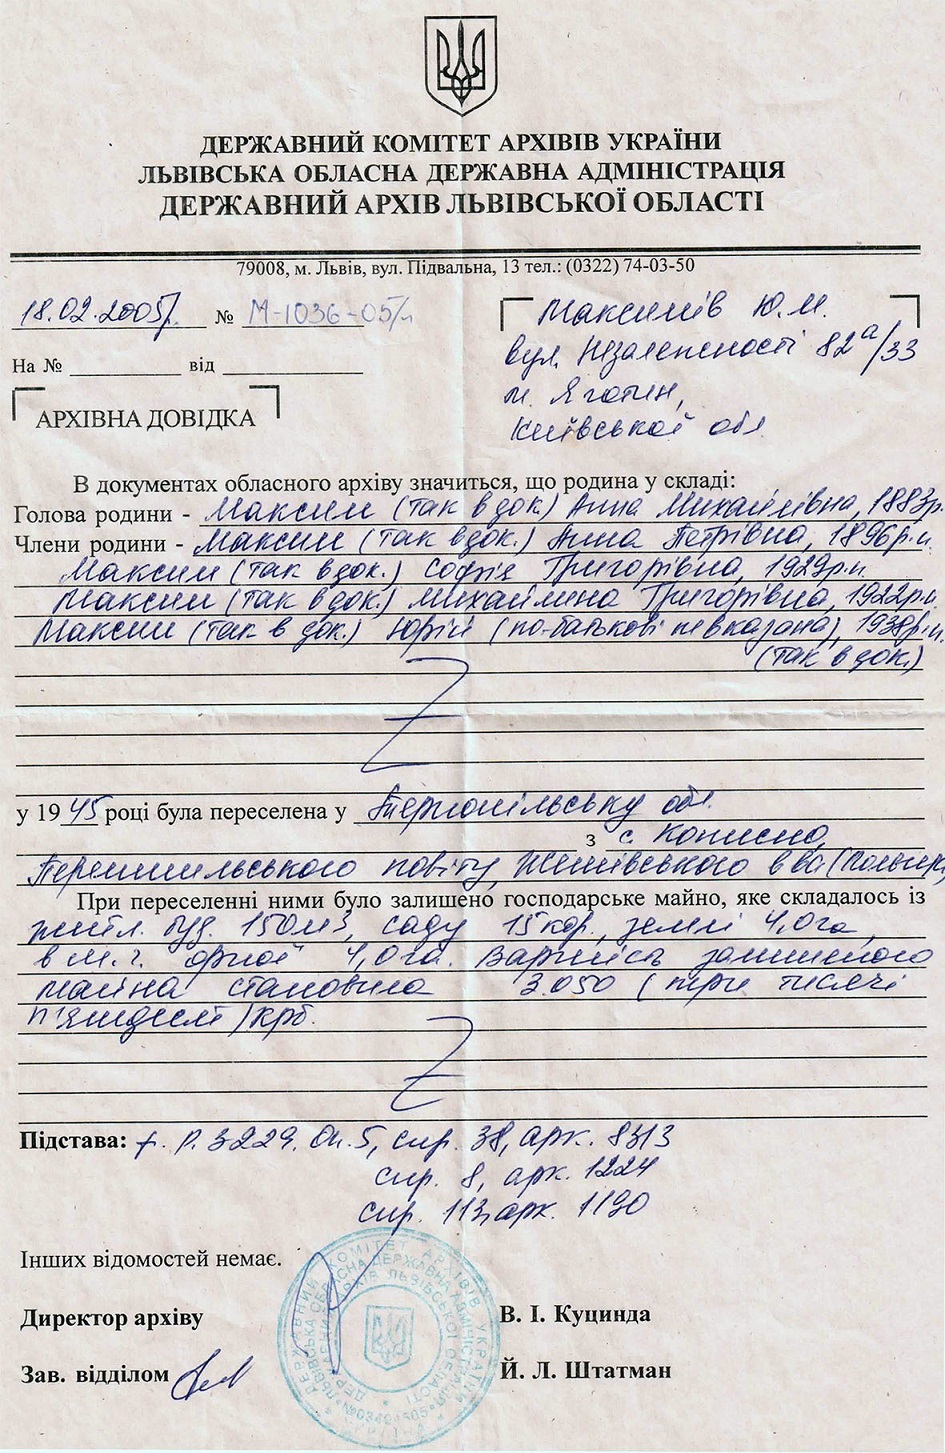 ДЕРЖАВНИЙ КОМІТЕТ АРХІВІВ УКРАЇНИ
ЛЬВІВСЬКА ОБЛАСНА ДЕРЖАВНА АДМІНІСТРАЦІЯ
ДЕРЖАВНИЙ АРХІВ ЛЬВІВСЬКОЇ ОБЛАСТІ
79008, м. Львів, вул. Підвальна, 13 тел.: (0322) 74-03-50
18.02.2005р. № М-1036-05/
На № від
АРХІВНА ДОВІДКА
Максимів Ю.М.
вул. Незалежності 82а/33
м. Яготин,
Київської обл.
В документах обласного архіву значиться, що родина у складі:
Голова родини - Максим (так в док) Анна Михайлівна, 1883р.
Члени родини - Максим (так в док.) Анна Петрівна, 1896р.н.
Максим (так в док.) Софія Григорівна, 1929р.н.
Максим (так в док.) Михайлина Григорівна, 1922р.н.
Максим (так в док.) Юрій (по-батькові не вказана), 1938р.н.
(так в док.)
у 1945 році була переселена у Тернопільську обл.
з с. Кописно,
Перемишльського повіту, в-ва (Польща)
При переселенні ними було залишено господарське майно, яке складалось із
житл. буд. 150м3, саду 15кор., землі 4,0га,
в т.ч. орної 4,0га. Вартість залишеного
майна становила 3.050 (три тисячі
п'ятдесят) крб.
Підстава: ф. Р.3229. Оп.5, спр. 38, арк. 8313
спр. 8, арк. 1224
спр. 113, арк. 1190
Інших відомостей немає.
Директор архіву В. І. Куцинда
Зав. відділом Й. Л. Штатман
ДЕРЖАВНИЙ КОМІТЕТ АРХІВІВ УКРАЇНИ
ЛЬВІВСЬКА ОБЛАСНА ДЕРЖАВНА АДМІНІСТРАЦІЯ
ДЕРЖАВНИЙ АРХІВ ЛЬВІВСЬКОЇ ОБЛАСТІ